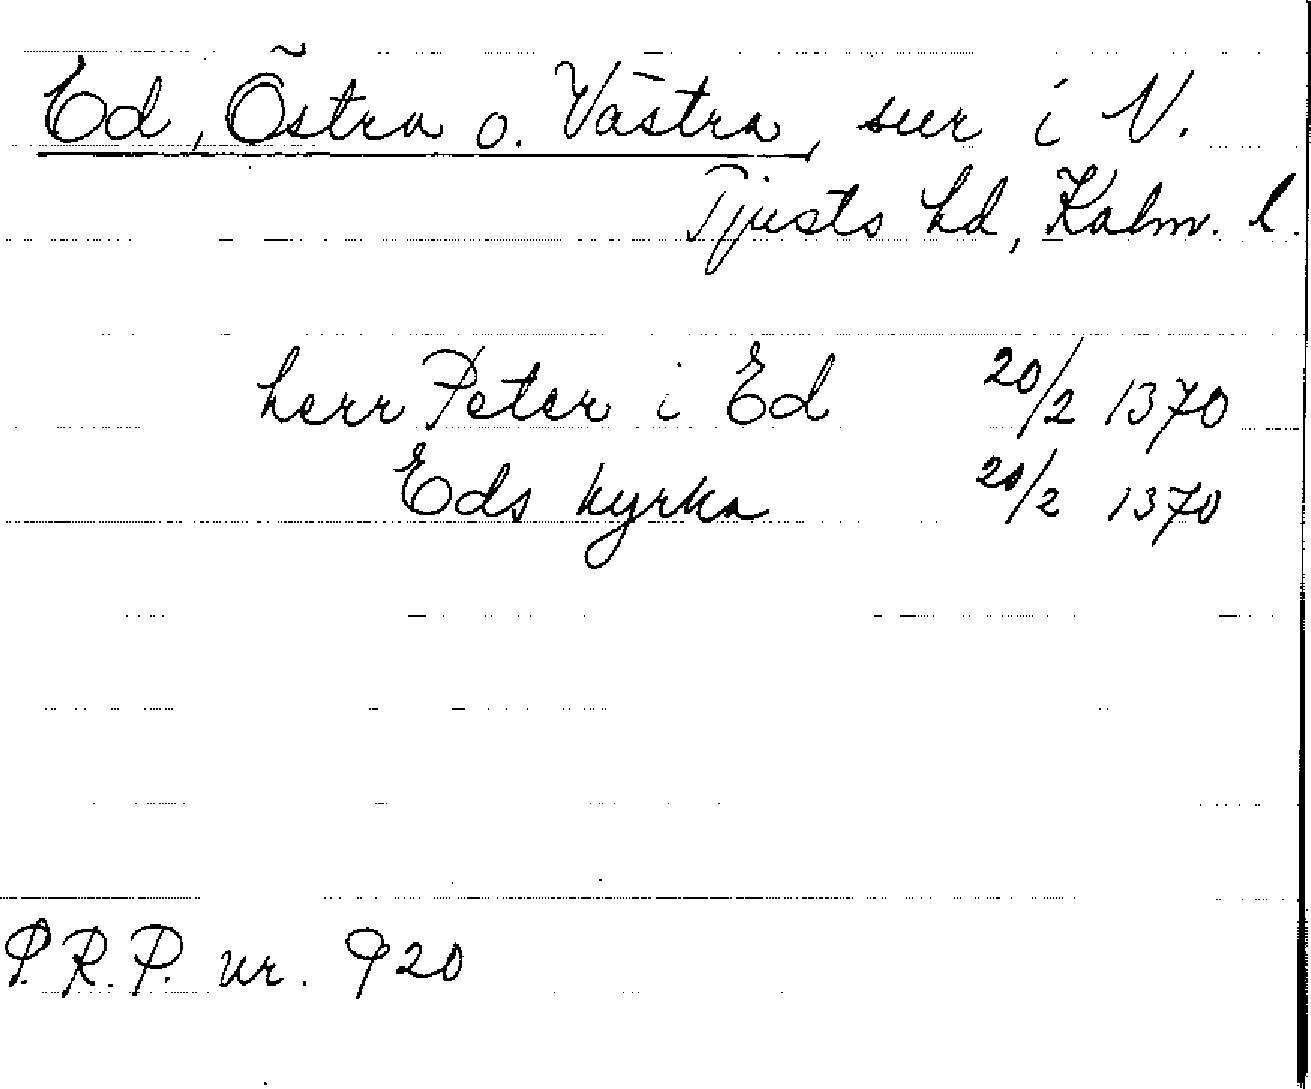 Ed, Östra o. Västra, snr i N.
Tjusts hd, Kalm. l.
herr Peter i Ed 20/2 1370
Eds kyrka 20/2 1370
P.R.P. nr. 920